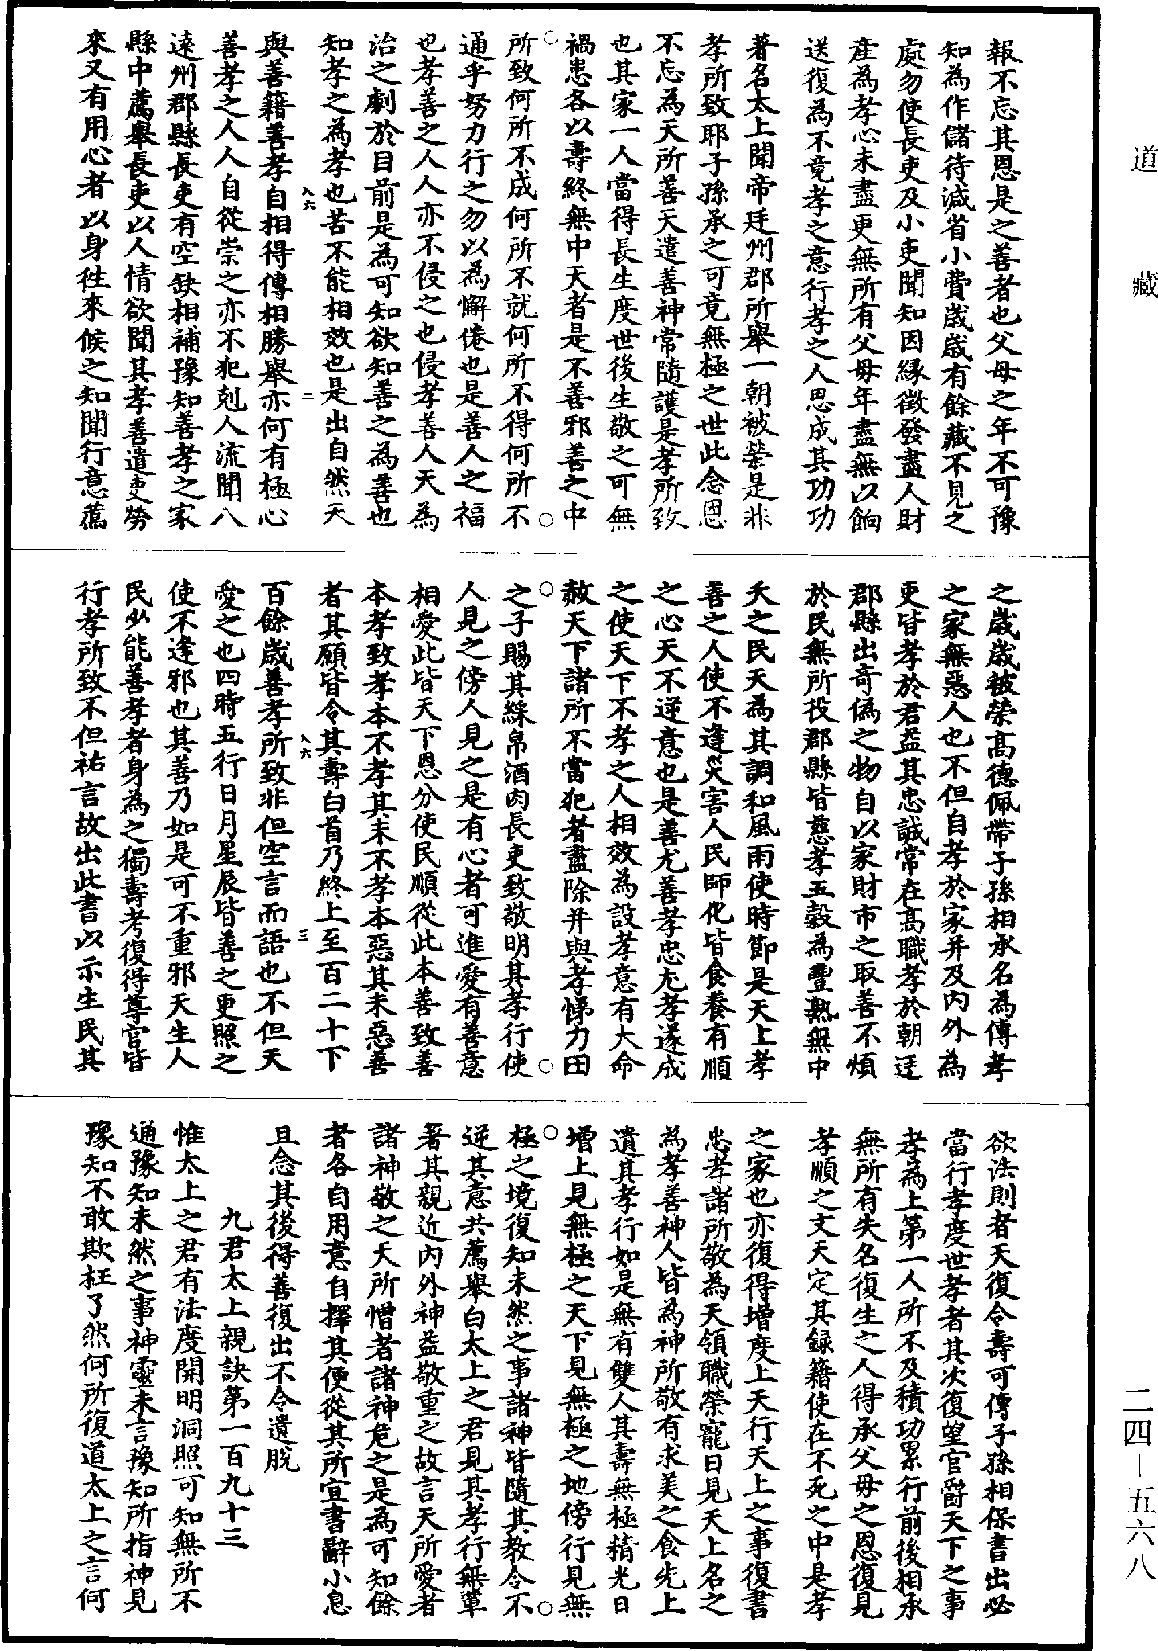 道藏
報不忘其恩是之善者也父母之年不可豫
知為作儲待減省小費歲歲有餘藏不見之
處勿使長吏及小吏聞知因緣徵發盡人財
產為孝心未盡更無所有父母年盡無以餉
送復為不竟孝之意行孝之人思成其功功
著名太上聞帝廷州郡所舉一朝被榮是非
孝所致耶子孫承之可竟無極之世此念恩
不忘為天所善天遣善神常隨護是孝所致
也其家一人當得長生度世後生敬之可無
禍患各以壽終無中夭者是不善邪善之中
所致何所不成何所不就何所不得何所不
通乎努力行之勿以為懈倦也是善人之福
也孝善之人人亦不侵之也侵孝善人天為
治之劇於目前是為可知欲知善之為善也
知孝之為孝也苦不能相效也是出自然天
八六
二
與善籍善孝自相得傳相勝舉亦何有極心
善孝之人人自從崇之亦不犯剋人流聞八
遠州郡縣長吏有空缺相補豫知善孝之家
縣中薦舉長吏以人情欲聞其孝善遣吏勞
來又有用心者以身往來候之知聞行意薦
之歲歲被榮高德佩帶子孫相承名為傳孝
之家無惡人也不但自孝於家并及內外為
吏皆孝於君益其忠誠常在高職孝於朝廷
郡縣出奇偽之物自以家財市之取善不煩
於民無所役郡縣皆慈孝五穀為豐熟無中
夭之民天為其調和風雨使時節是天上孝
善之人使不逢災害人民師化皆食養有順
之心天不逆意也是善尤善孝忠尤孝遂成
之使天下不孝之人相效為設孝意有大命
赦天下諸所不當犯者盡除并與孝悌力田
之子賜其綵帛酒肉長吏致敬明其孝行使
人見之傍人見之是有心者可進愛有善意
相愛此皆天下恩分使民順從此本善致善
本孝致孝本不孝其末不孝本惡其末惡善
者其願皆令其壽白首乃終上至百二十下
八六
三
百餘歲善孝所致非但空言而語也不但天
愛之也四時五行日月星辰皆善之更照之
使不逢邪也其善乃如是可不重邪天生人
民少能善孝者身為之獨壽考復得尊官皆
行孝所致不但祐言故出此書以示生民其
欲法則者天復令壽可傳子孫相保書出必
當行孝度世孝者其次復望官爵天下之事
孝為上第一人所不及積功累行前後相承
無所有失名復生之人得承父母之恩復見
孝順之文天定其錄籍使在不死之中是孝
之家也亦復得增度上天行天上之事復書
忠孝諸所敬為天領職榮寵日見天上名之
為孝善神人皆為神所敬有求美之食先上
遺其孝行如是無有雙人其壽無極精光日
增上見無極之天下見無極之地傍行見無
極之境復知未然之事諸神皆隨其教令不
逆其意共薦舉白太上之君見其孝行無輩
著其親近內外神益敬重之故言天所愛者
諸神敬之天所憎者諸神危之是為可知餘
者各自用意自擇其便從其所宜書辭小息
且念其後得善復出不令遺脫
九君太上親訣第一百九十三
惟太上之君有法度開明洞照可知無所不
通豫知未然之事神靈未言豫知所指神見
豫知不敢欺枉了然何所復道太上之言何
二四—五六八